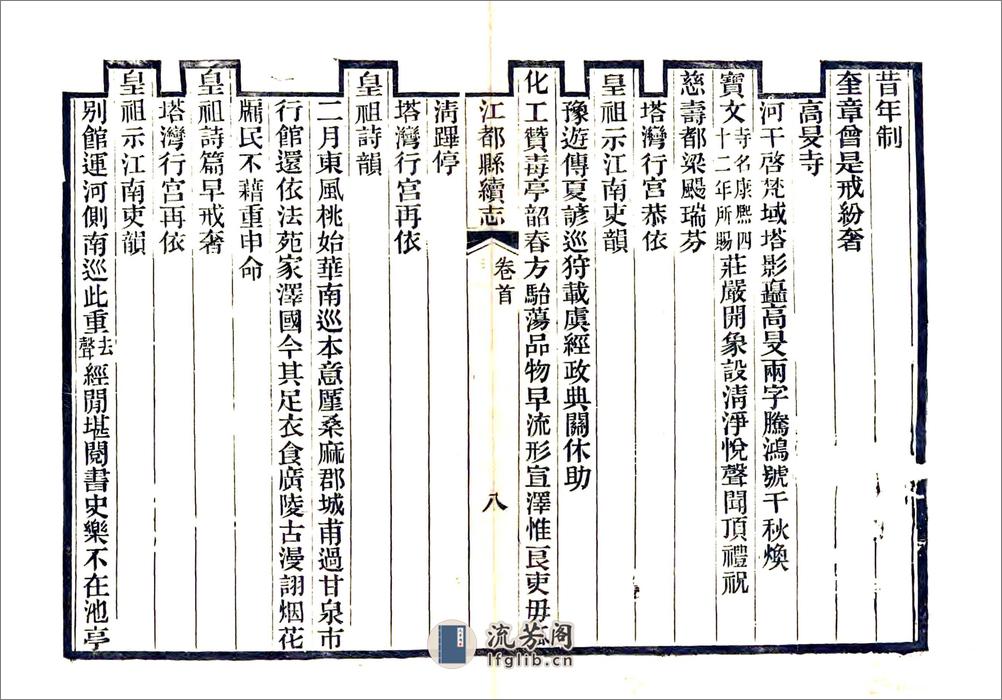 昔年制
奎章曾是戒紛奢
高旻寺
河干啓梵域塔影矗高旻兩字騰鴻號千秋煥
寶文寺名康熙四十二年所賜莊嚴開象設淸淨悅聲聞頂禮祝
慈壽都梁颺瑞芬
塔灣行宮恭依
皇祖示江南吏韻
豫遊傳夏諺巡狩載虞經政典關休助
化工贊毒亭韶春方駘蕩品物早流形宣澤惟良吏毋
江都縣續志 卷首 八
淸蹕停
塔灣行宮再依
皇祖詩韻
二月東風桃始華南巡本意厪桑麻郡城甫過甘泉市
行館還依法苑家澤國今其足衣食廣陵古漫詡烟花
牖民不藉重申命
皇祖詩篇早戒奢
塔灣行宮再依
皇祖示江南吏韻
別館運河側南巡此重去聲經閒堪閱書史樂不在池亭
流芳阁
lfglib.cn